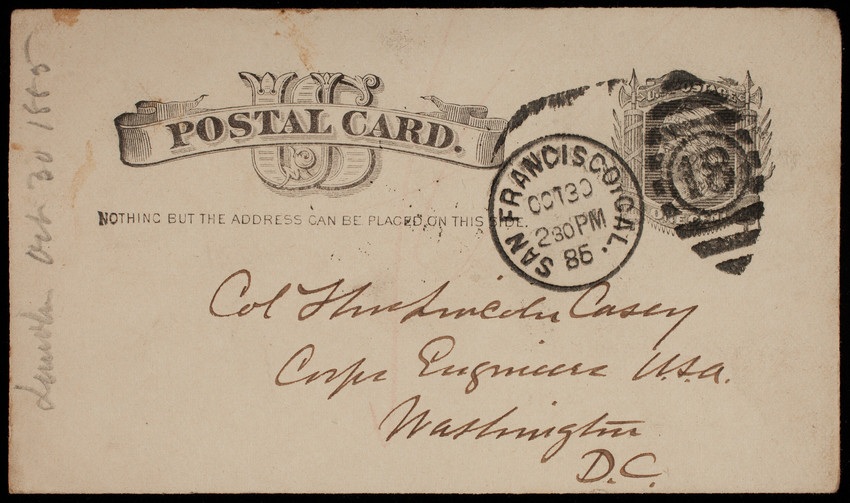 US
POSTAL CARD.
NOTHING BUT THE ADDRESS CAN BE PLACED ON THIS SIDE.
SAN FRANCISCO, CAL.
OCT 30
2 30 PM
85
U.S. POSTAGE
18
Col Thos Lincoln Casey
Corps Engineers U.S.A.
Washington
D.C.
Oct 30 1885